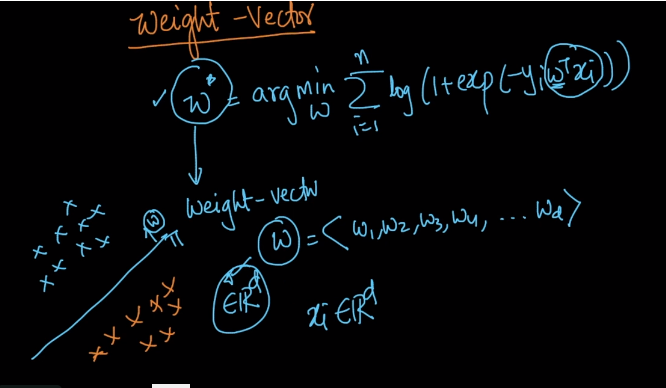 Weight-Vector
w* = argmin_w Σ_{i=1}^{n} log(1+exp(-y_i w^T x_i))
weight-vector
w π
w = <w₁,w₂,w₃,w₄, ... w_d>
∈ℝ^d x_i ∈ ℝ^d